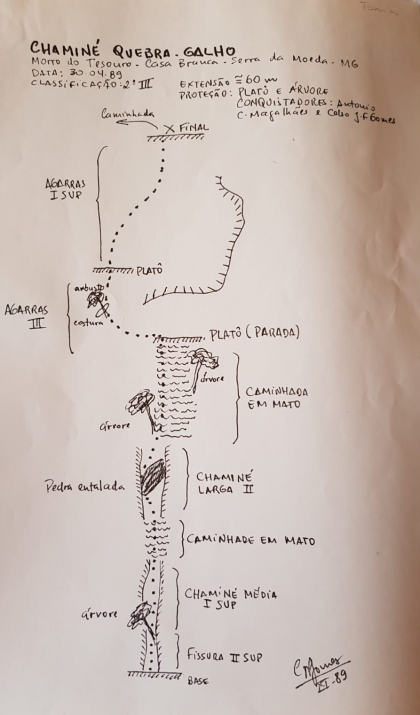 CHAMINÉ QUEBRA-GALHO
MORRO DO TESOURO - CASA BRANCA - SERRA DA MOEDA - MG
DATA: 30.04.89
CLASSIFICAÇÃO: 2º III
EXTENSÃO ≅ 60 m
PROTEÇÃO: PLATÔ E ÁRVORE
CONQUISTADORES: Antonio
C. Magalhães e Celso J.F Gomes
Caminhada
X FINAL
AGARRAS
I SUP
PLATÔ
arbusto
AGARRAS
III
costura
PLATÔ (PARADA)
árvore
CAMINHADA
EM MATO
árvore
Pedra entalada
CHAMINÉ
LARGA II
CAMINHADE EM MATO
CHAMINÉ MÉDIA
I SUP
árvore
FISSURA II SUP
BASE
XI-89